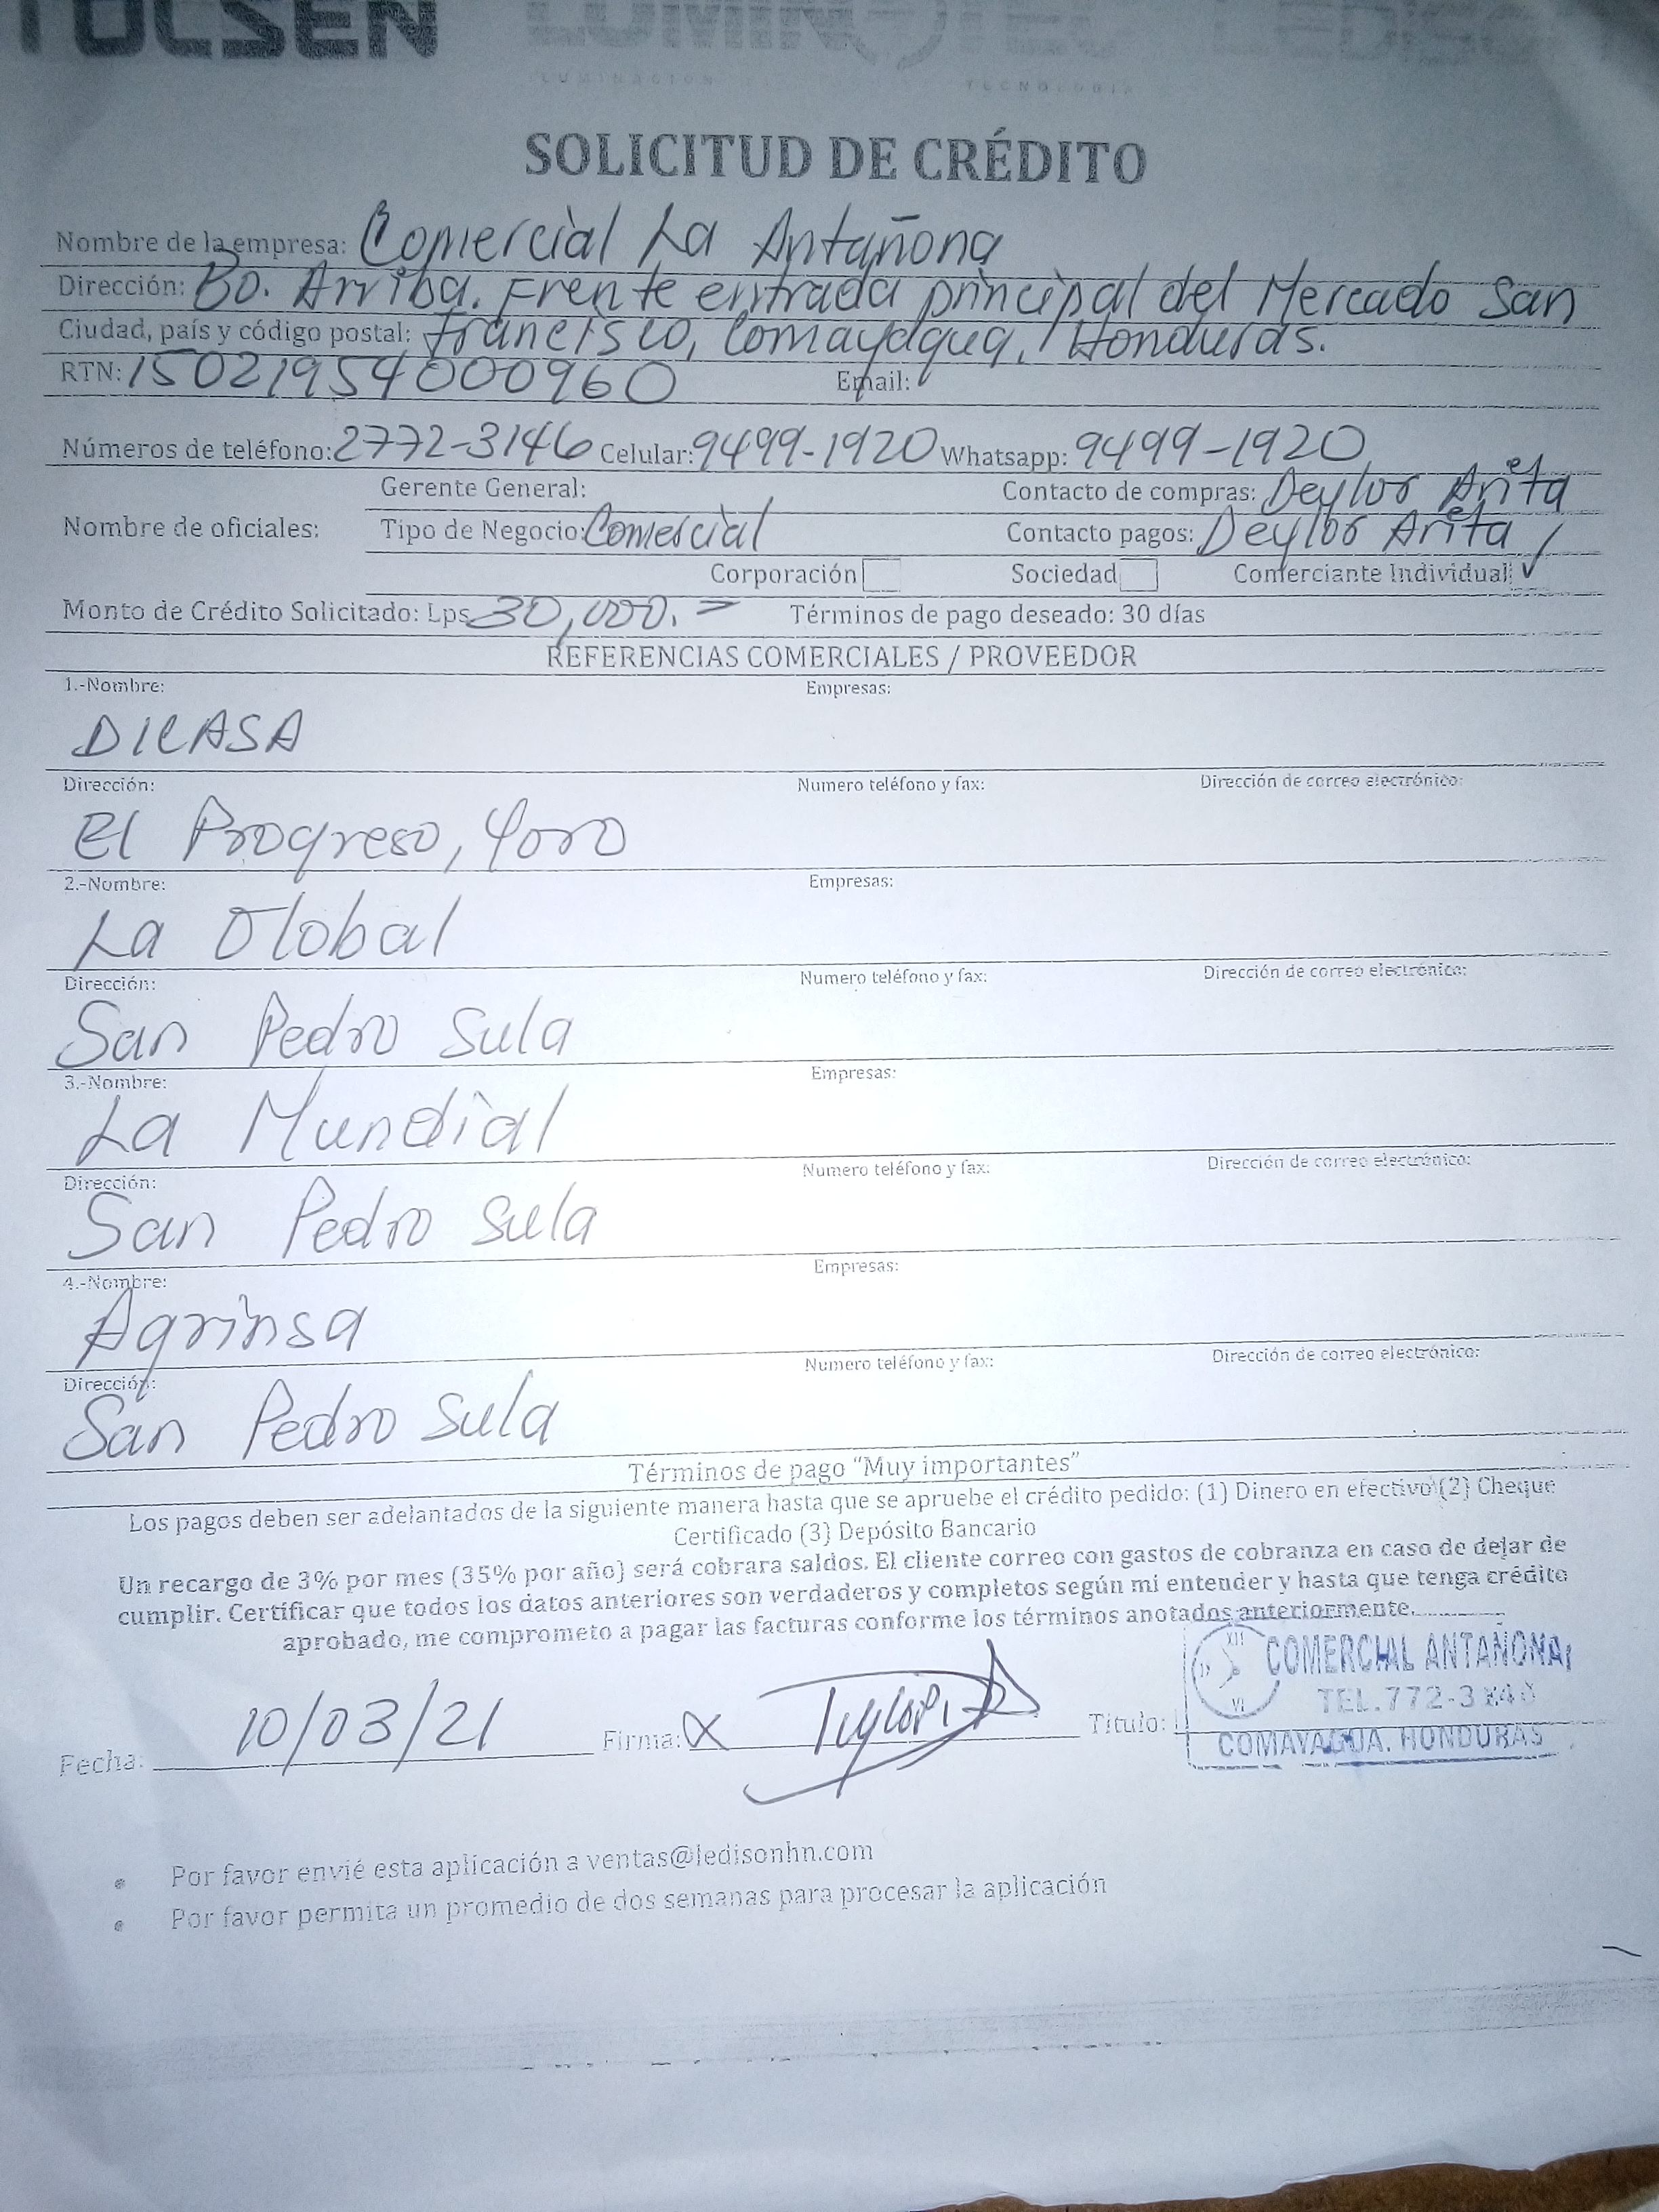 TOLSEN LUMINOTEC LEDISON
ILUMINACION TECNOLOGIA
SOLICITUD DE CRÉDITO
Nombre de la empresa: Comercial La Antañona
Dirección: Bo. Arriba. Frente entrada principal del Mercado San
Ciudad, país y código postal: Francisco, Comayagua, Honduras.
RTN: 15021954000960 Email:
Números de teléfono: 2772-3146 Celular: 9499-1920 Whatsapp: 9499-1920
Gerente General: Contacto de compras: Deylor Arita
Nombre de oficiales: Tipo de Negocio: Comercial Contacto pagos: Deylor Arita
Corporación Sociedad Comerciante Individual: ✓
Monto de Crédito Solicitado: Lps 30,000.= Términos de pago deseado: 30 días
REFERENCIAS COMERCIALES / PROVEEDOR
1.-Nombre: Empresas:
DICASA
Dirección: Numero teléfono y fax: Dirección de correo electrónico:
El Progreso, Yoro
2.-Nombre: Empresas:
La Global
Dirección: Numero teléfono y fax: Dirección de correo electrónico:
San Pedro Sula
3.-Nombre: Empresas:
La Mundial
Dirección: Numero teléfono y fax: Dirección de correo electrónico:
San Pedro Sula
4.-Nombre: Empresas:
Agrinsa
Dirección: Numero teléfono y fax: Dirección de correo electrónico:
San Pedro Sula
Términos de pago "Muy importantes"
Los pagos deben ser adelantados de la siguiente manera hasta que se apruebe el crédito pedido: (1) Dinero en efectivo (2) Cheque
Certificado (3) Depósito Bancario
Un recargo de 3% por mes (35% por año) será cobrara saldos. El cliente correo con gastos de cobranza en caso de dejar de
cumplir. Certificar que todos los datos anteriores son verdaderos y completos según mi entender y hasta que tenga crédito
aprobado, me comprometo a pagar las facturas conforme los términos anotados anteriormente.
COMERCIAL ANTAÑONA
TEL. 772-3146
COMAYAGUA, HONDURAS
Fecha: 10/03/21 Firma: X Título:
Por favor envié esta aplicación a ventas@ledisonhn.com
Por favor permita un promedio de dos semanas para procesar la aplicación